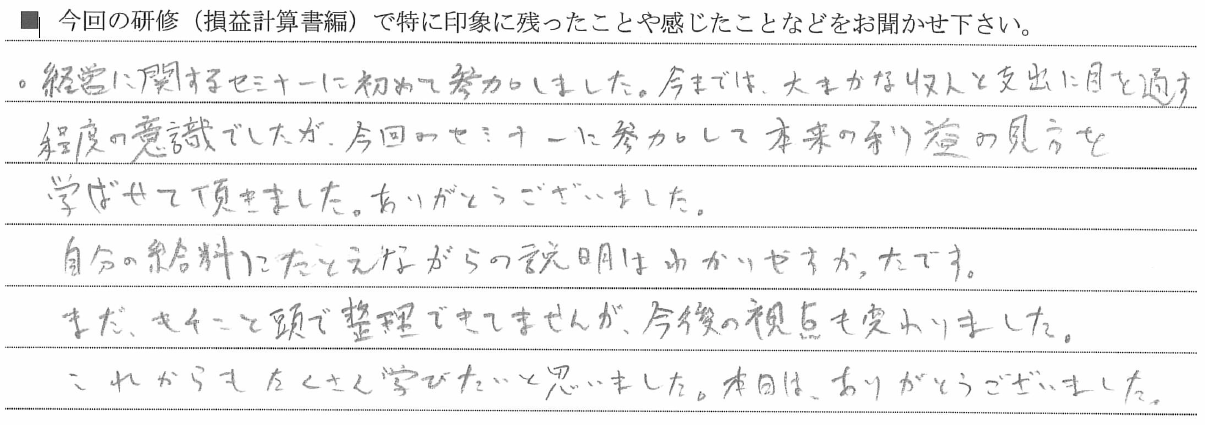 ■ 今回の研修（損益計算書編）で特に印象に残ったことや感じたことなどをお聞かせ下さい。
。経営に関するセミナーに初めて参加しました。今までは、大まかな収入と支出に目を通す
程度の意識でしたが、今回のセミナーに参加して本来の利益の見方を
学ばせて頂きました。ありがとうございました。
自分の給料にたとえながらの説明はわかりやすかったです。
まだ、きちんと頭で整理できてませんが、今後の視点も変わりました。
これからもたくさん学びたいと思いました。本日は、ありがとうございました。